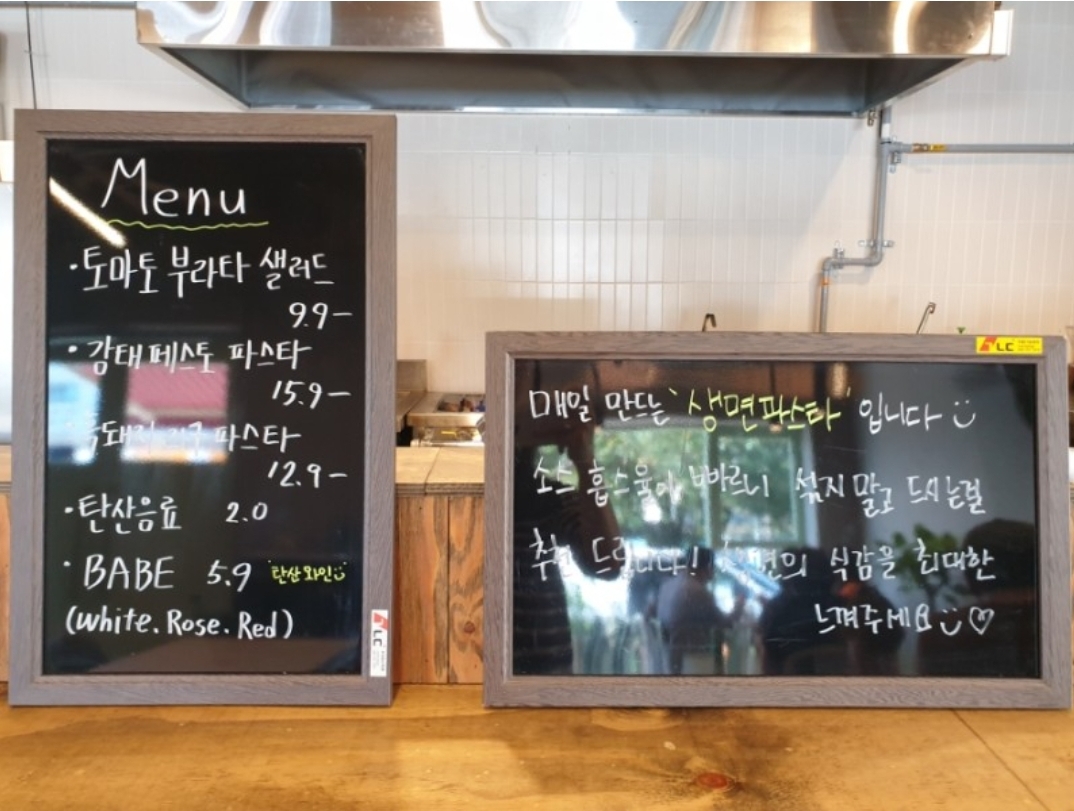 Menu
· 토마토 부라타 샐러드
9.9-
· 감태페스토 파스타
15.9-
파스타
12.9-
· 탄산음료 2.0
· BABE 5.9 탄산와인
(White. Rose. Red)
LC
LC
매일 만드는 '생면파스타' 입니다
소스 흡수율이 빠르니 섞지 말고 드시는걸
추천 드립니다! 생면의 식감을 최대한
느껴주세요